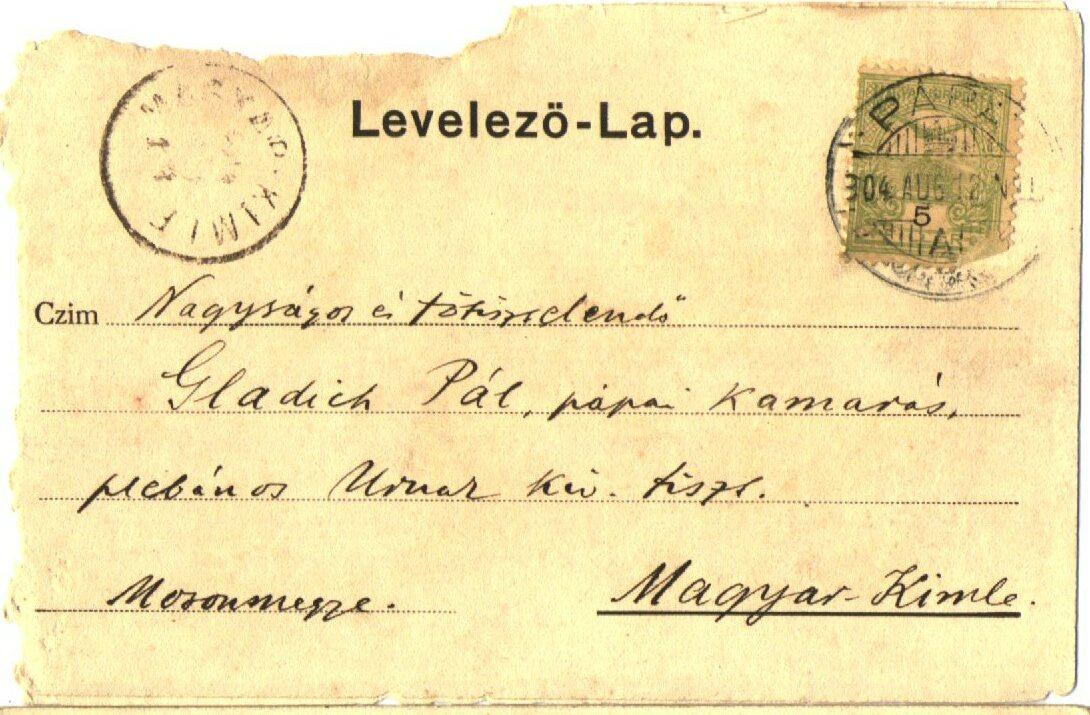 Levelező-Lap.
PÁPA
904 AUG 12
5
MAGYAR-KIMLE
Czim Nagyságos és főtisztelendő
Gladich Pál, pápai kamarás,
plébános Urnak kiv. tiszt.
Mosonmegye.
Magyar-Kimle.